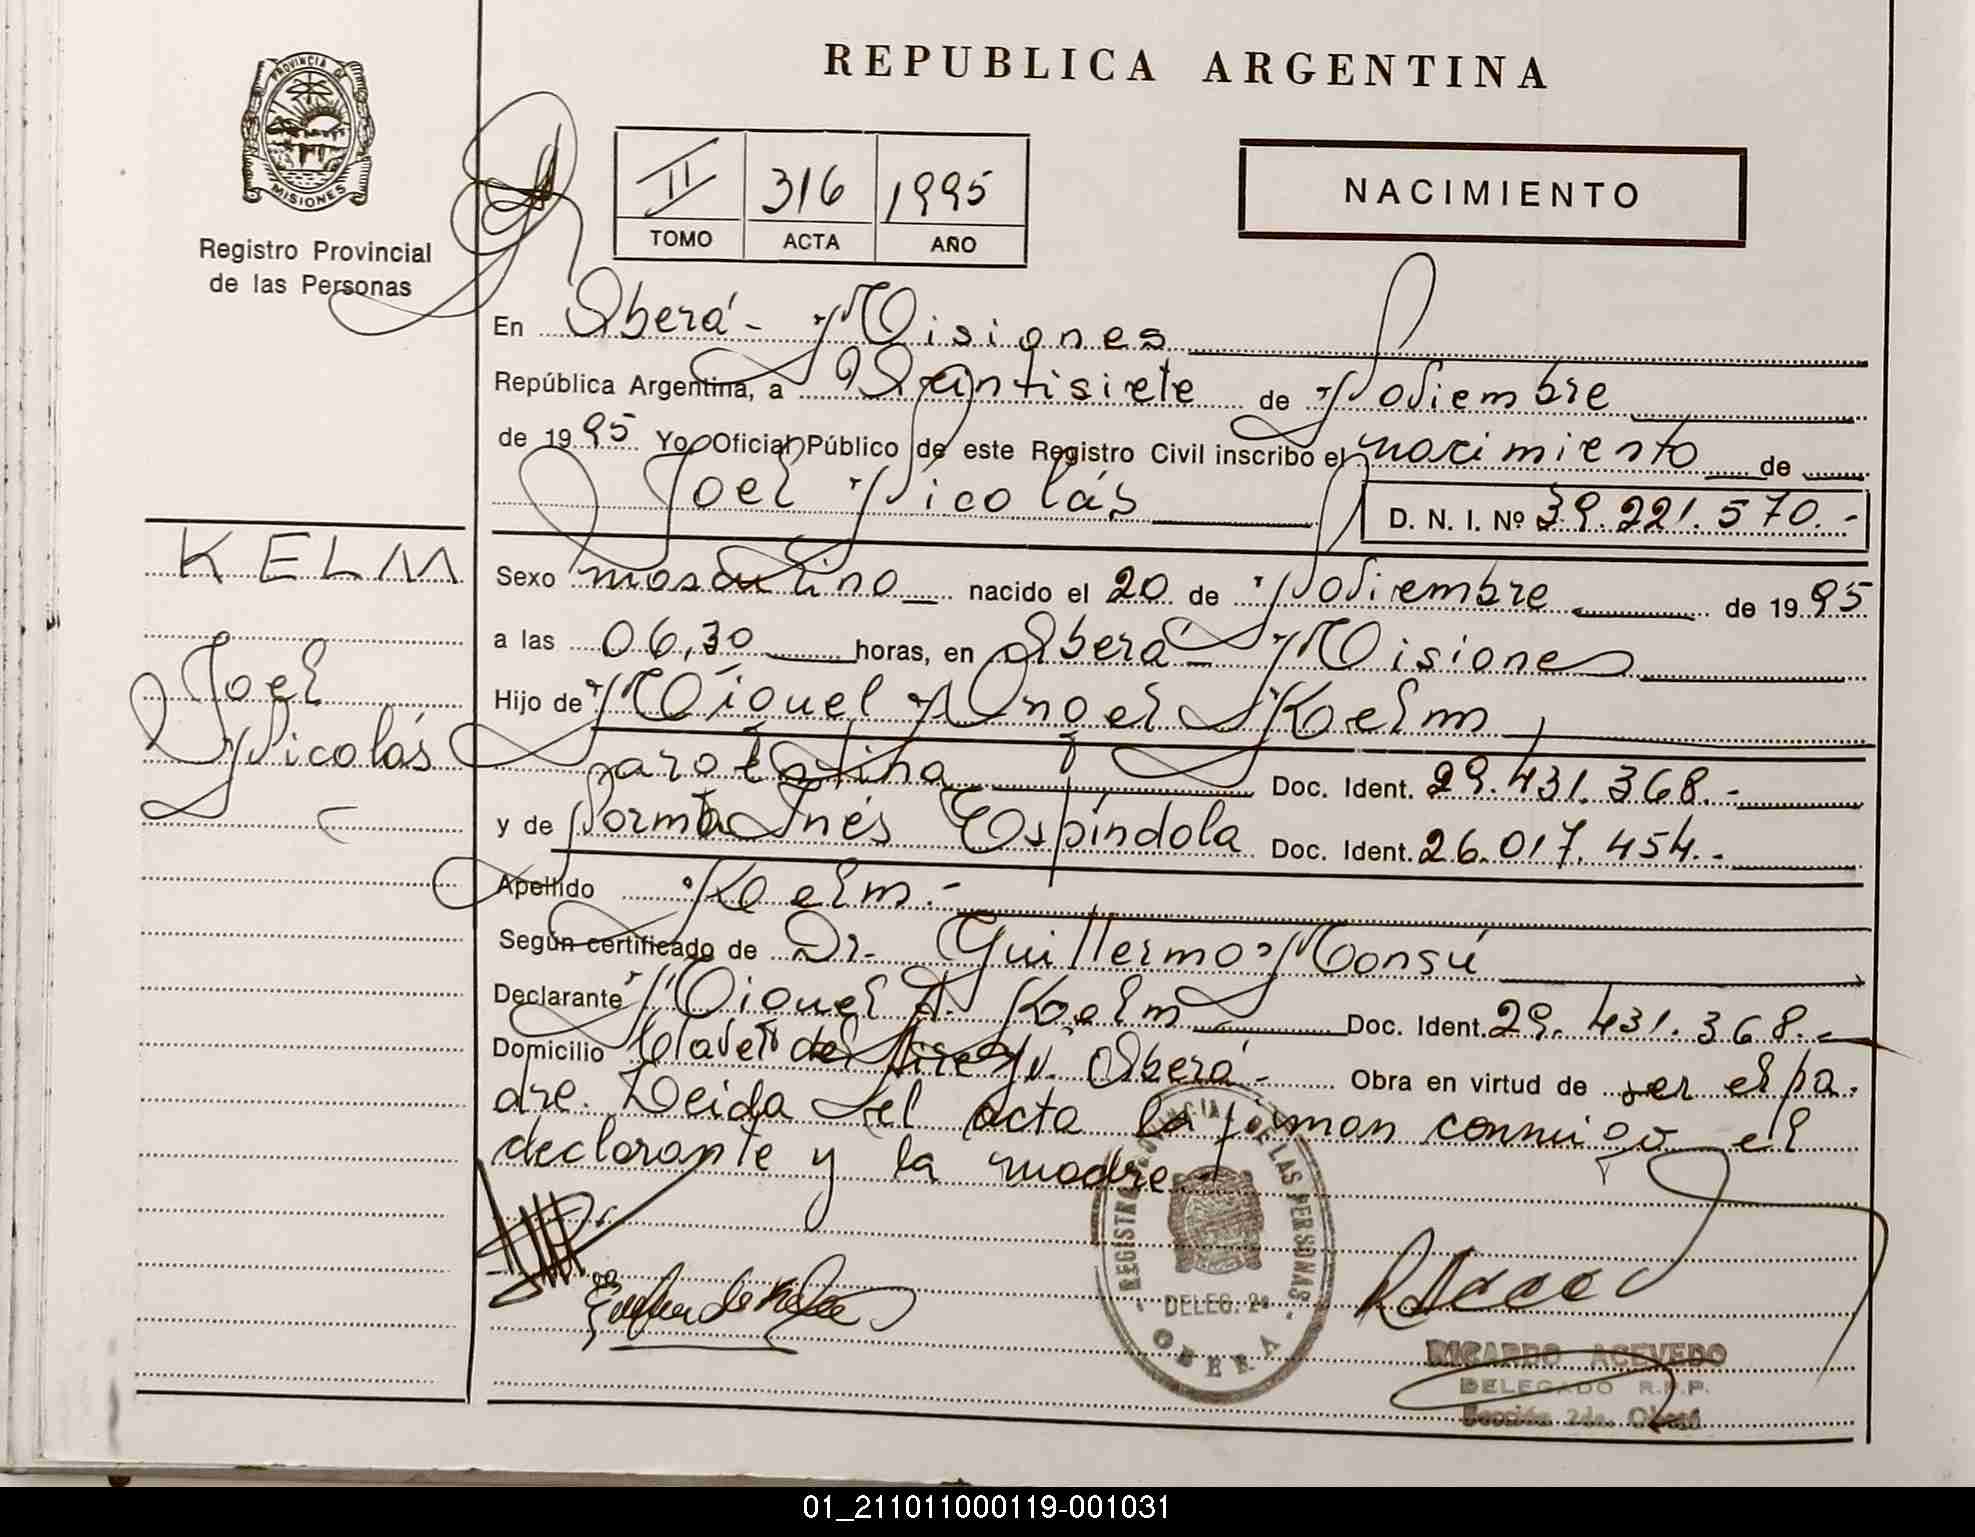 REPUBLICA ARGENTINA
PROVINCIA DE
MISIONES
Registro Provincial
de las Personas
II 316 1995
TOMO ACTA AÑO
NACIMIENTO
En Oberá - Misiones
República Argentina, a Veintisiete de Noviembre
de 1995 Yo Oficial Público de este Registro Civil inscribo el nacimiento de
Joel Nicolás D. N. I. Nº 39.221.570.-
KELM
Joel
Nicolás
Sexo masculino nacido el 20 de Noviembre de 1995
a las 06,30 horas, en Oberá - Misiones
Hijo de Miguel Angel Kelm
argentina Doc. Ident. 29.431.368.-
y de Norma Inés Espíndola Doc. Ident. 26.017.454.-
Apellido Kelm.-
Según certificado de Dr. Guillermo Monsú
Declarante Miguel A. Kelm Doc. Ident. 29.431.368.-
Domicilio Clavel del Aire Oberá - Obra en virtud de ser el pa-
dre. Leida el acta la firman conmigo el
declarante y la madre
REGISTRO PROVINCIAL DE LAS PERSONAS
DELEG. 2ª
OBERA
RICARDO ACEVEDO
DELEGADO R.P.P.
Sección 2da. Oberá
01_211011000119-001031